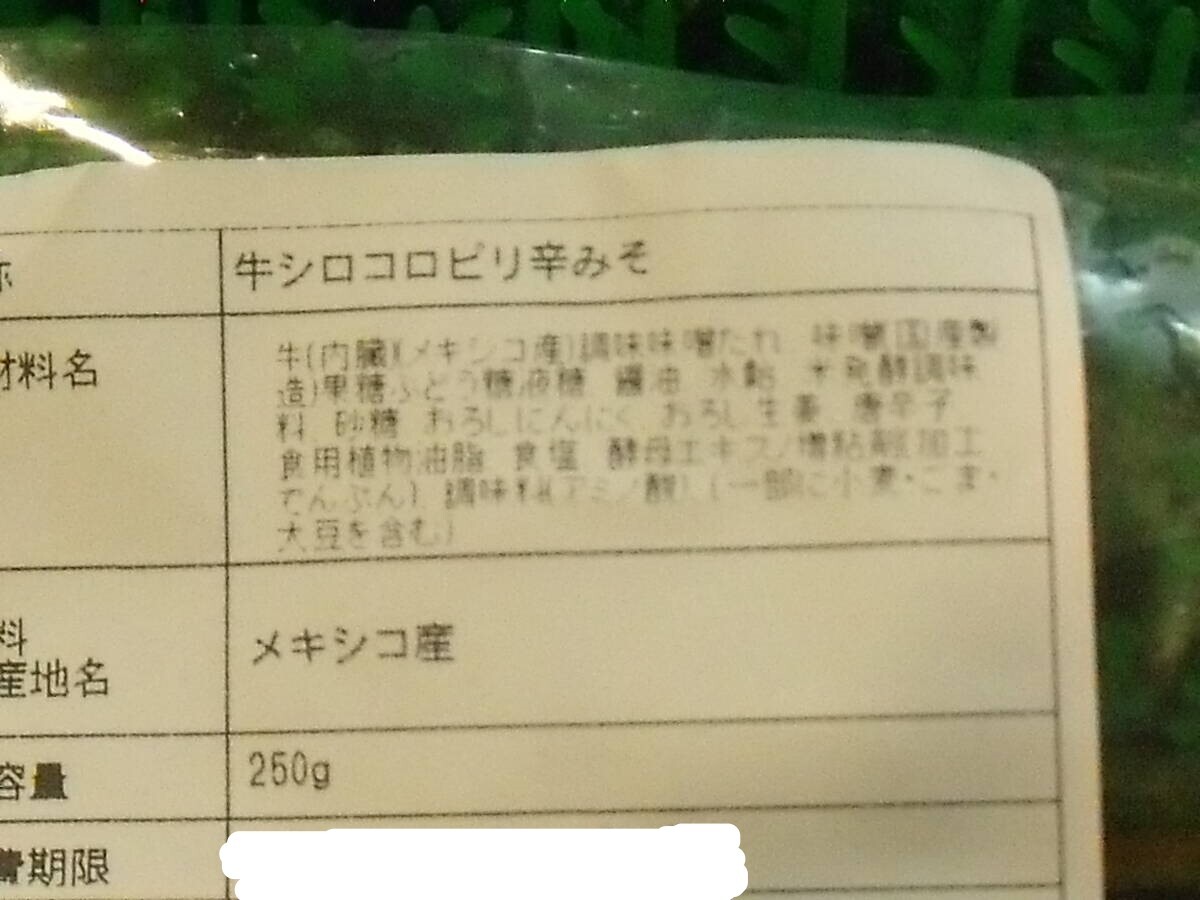 牛シロコロピリ辛みそ
材料名
牛(内臓)(メキシコ産)調味味噌たれ 味噌国産製
造)果糖ぶどう糖液糖 醤油 水飴 米発酵調味
料 砂糖 おろしにんにく おろし生姜 唐辛子
食用植物油脂 食塩 酵母エキス/増粘剤(加工
でんぷん)、調味料(アミノ酸)、(一部に小麦・ごま・
大豆を含む)
料
産地名
メキシコ産
容量
250g
期限